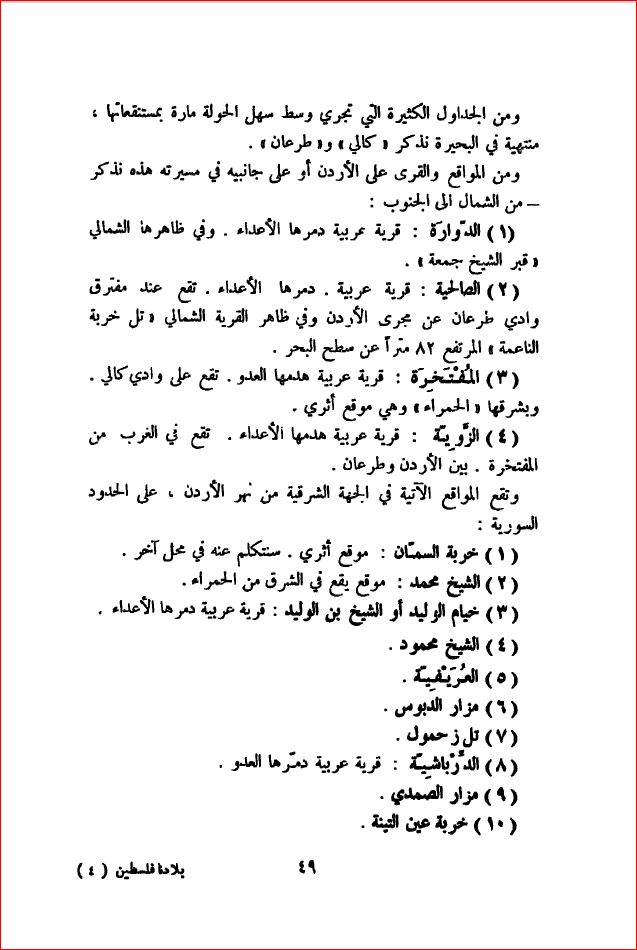 ومن الجداول الكثيرة التي تجري وسط سهل الحولة مارة بمستنقعاتها ،
منتهية في البحيرة نذكر « كالي » و« طرعان » .
ومن المواقع والقرى على الأردن أو على جانبيه في مسيرته هذه نذكر
– من الشمال الى الجنوب :
( ١ ) الدّوارة : قرية عربية دمرها الأعداء . وفي ظاهرها الشمالي
« قبر الشيخ جمعة » .
( ٢ ) الصالحية : قرية عربية . دمرها الأعداء . تقع عند مفترق
وادي طرعان عن مجرى الأردن وفي ظاهر القرية الشمالي « تل خربة
الناعمة » المرتفع ٨٢ متراً عن سطح البحر .
( ٣ ) المُفْتَخِرَة : قرية عربية هدمها العدو . تقع على وادي كالي .
وبشرقها « الحمراء » وهي موقع أثري .
( ٤ ) الزَّوِيّة : قرية عربية هدمها الأعداء . تقع في الغرب من
المفتخرة . بين الأردن وطرعان .
وتقع المواقع الآتية في الجهة الشرقية من نهر الأردن ، على الحدود
السورية :
( ١ ) خربة السمّان : موقع أثري . سنتكلم عنه في محل آخر .
( ٢ ) الشيخ محمد : موقع يقع في الشرق من الحمراء .
( ٣ ) خيام الوليد أو الشيخ بن الوليد : قرية عربية دمرها الأعداء .
( ٤ ) الشيخ محمود .
( ٥ ) العُرَيْفِيّة .
( ٦ ) مزار الدبوس .
( ٧ ) تل زحمول .
( ٨ ) الدَّرْباشِيّة : قرية عربية دمّرها العدو .
( ٩ ) مزار الصمدي .
( ١٠ ) خربة عين التينة .
٤٩
بلادنا فلسطين ( ٤ )